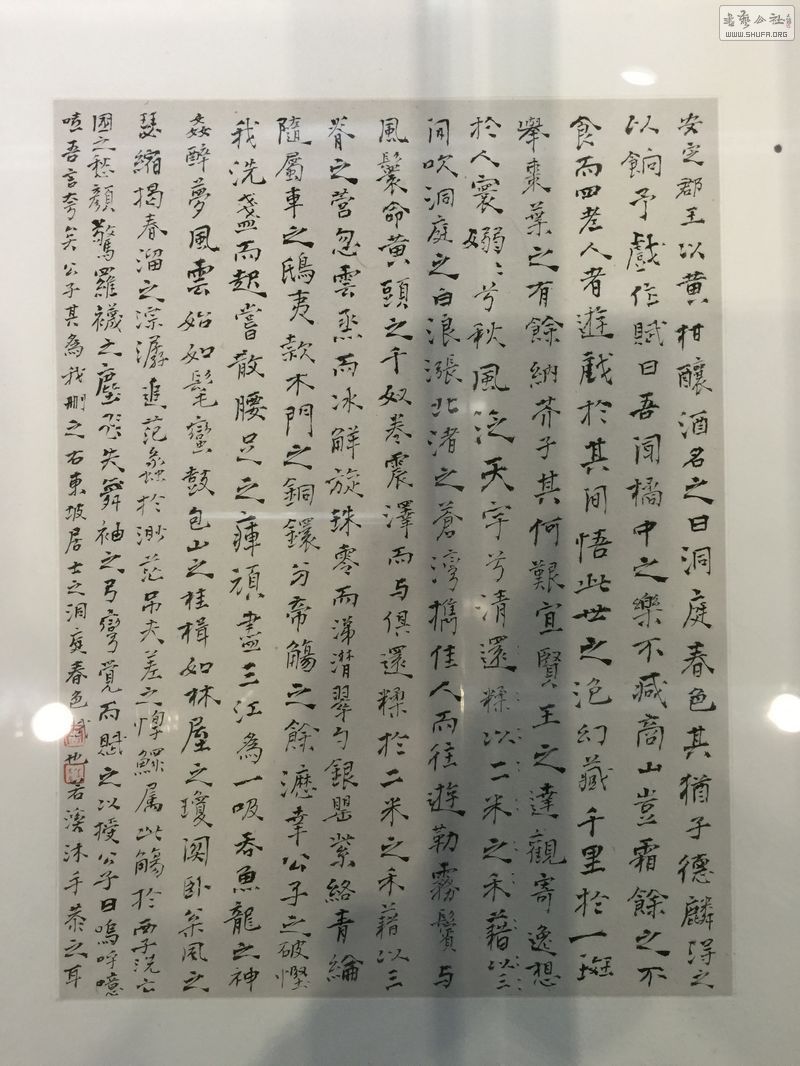 安定郡王以黄柑釀酒名之曰洞庭春色其猶子德麟得之
以餉予戲作賦曰吾聞橘中之樂不减商山豈霜餘之不
食而四老人者遊戲於其間悟此世之泡幻藏千里於一斑
舉棗葉之有餘納芥子其何艱宜賢王之達觀寄逸想
於人寰嫋〻兮秋風泛天宇兮清還糅以二米之禾藉以三
間吹洞庭之白浪漲北渚之蒼灣攜佳人而往遊勒霧鬢与
風鬟命黄頭之千奴卷震澤而与俱還糅於二米之禾藉以三
脊之菅忽雲烝而冰解旋珠零而涕潸翠勺銀罌紫絡青綸
隨屬車之鴟夷款木門之銅鐶分帝觴之餘瀝幸公子之破慳
我洗盞而起嘗散腰足之痺頑盡三江為一吸吞魚龍之神
姦醉夢風雲始如髦蠻鼓包山之桂楫如林屋之瓊関卧枀風之
瑟縮揭春溜之淙潺追范蠡於渺茫吊夫差之惸鰥属此觴於西子洗亡
國之愁顔驚羅襪之塵飛失舞袖之弓彎覺而賦之以授公子曰嗚呼噫
嘻吾言夸矣公子其為我刪之右東坡居士之洞庭春色賦也若沐手恭之耳
書藝公社
WWW.SHUFA.ORG